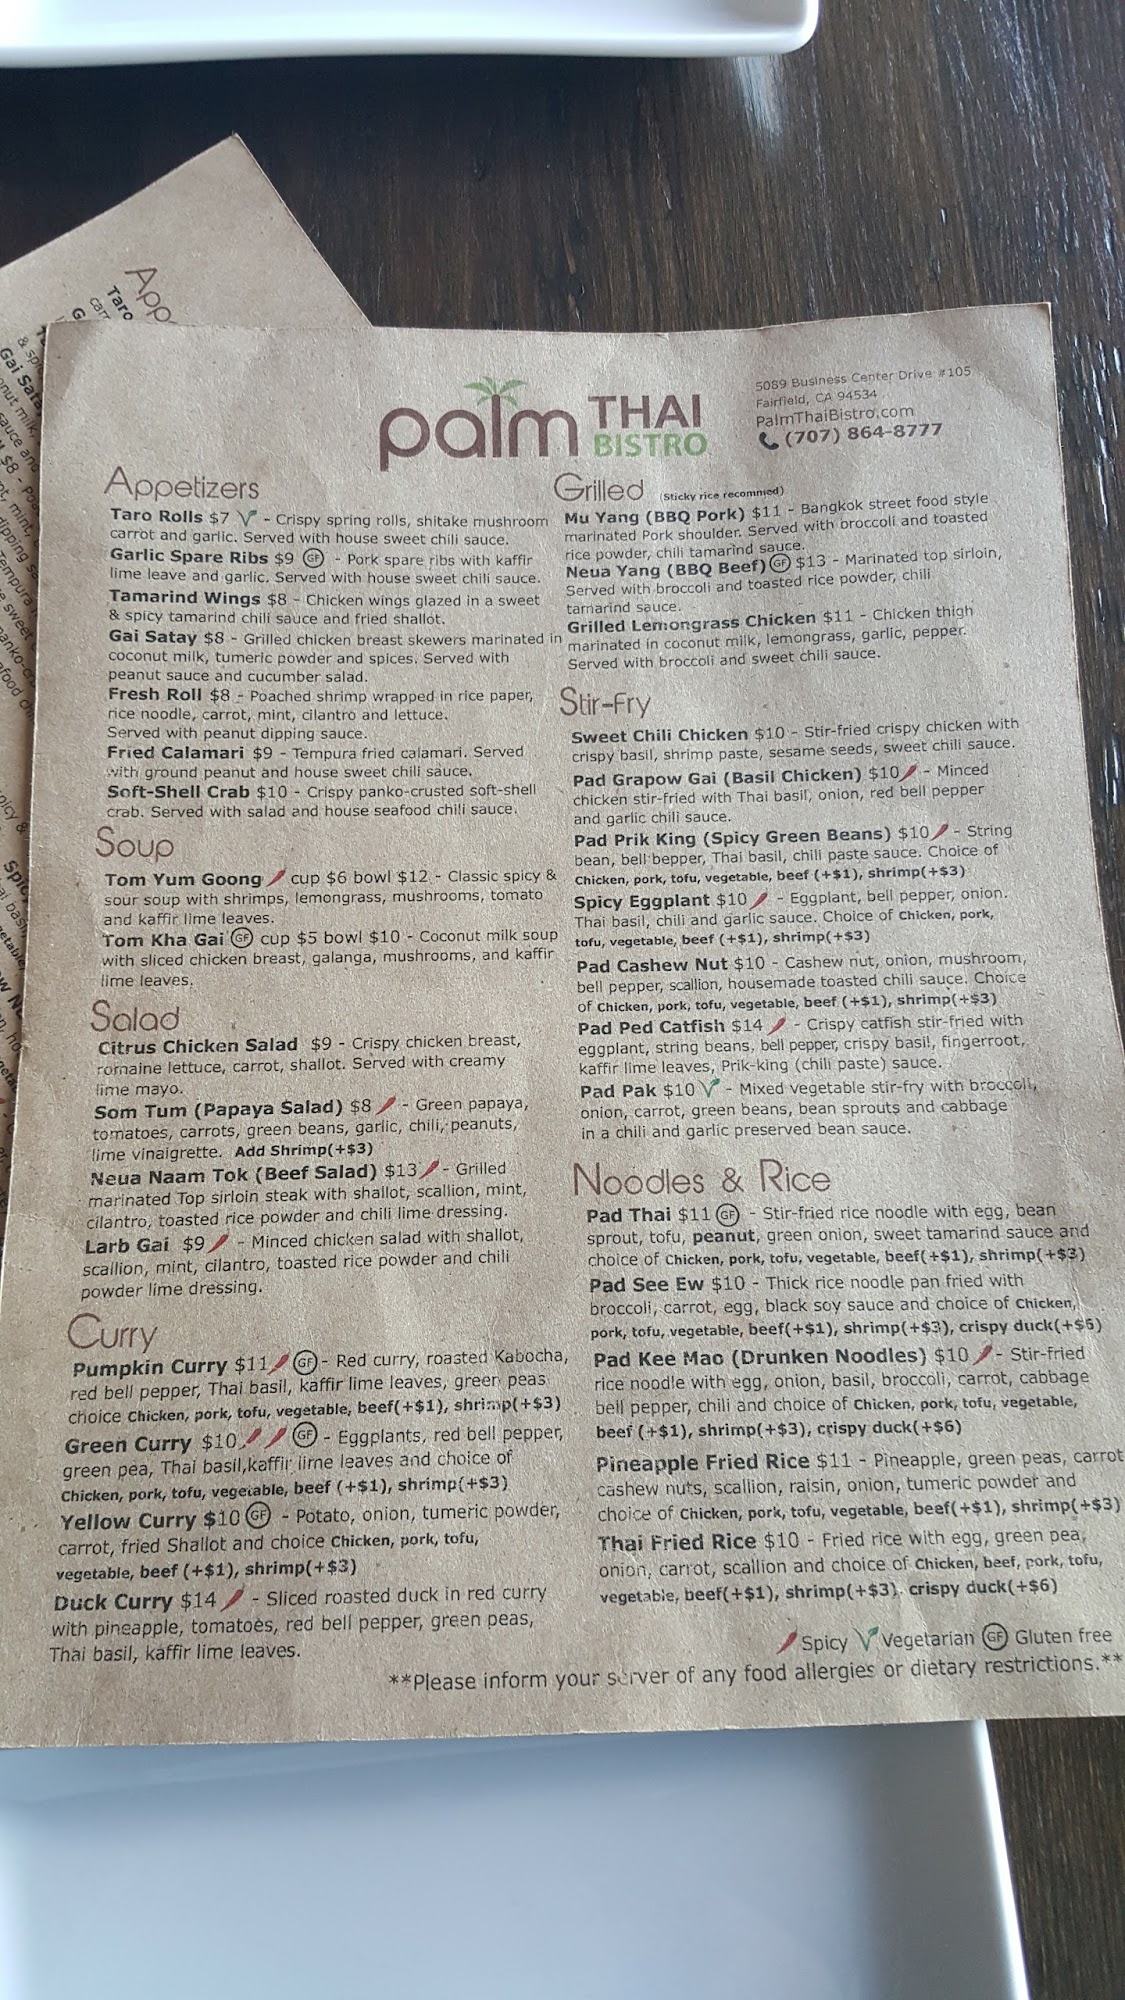 palm THAI
BISTRO
5089 Business Center Drive #105
Fairfield, CA 94534
PalmThaiBistro.com
(707) 864-8777
Appetizers
Taro Rolls $7 - Crispy spring rolls, shitake mushroom
carrot and garlic. Served with house sweet chili sauce.
Garlic Spare Ribs $9 GF - Pork spare ribs with kaffir
lime leave and garlic. Served with house sweet chili sauce.
Tamarind Wings $8 - Chicken wings glazed in a sweet
& spicy tamarind chili sauce and fried shallot.
Gai Satay $8 - Grilled chicken breast skewers marinated in
coconut milk, tumeric powder and spices. Served with
peanut sauce and cucumber salad.
Fresh Roll $8 - Poached shrimp wrapped in rice paper,
rice noodle, carrot, mint, cilantro and lettuce.
Served with peanut dipping sauce.
Fried Calamari $9 - Tempura fried calamari. Served
with ground peanut and house sweet chili sauce.
Soft-Shell Crab $10 - Crispy panko-crusted soft-shell
crab. Served with salad and house seafood chili sauce.
Soup
Tom Yum Goong cup $6 bowl $12 - Classic spicy &
sour soup with shrimps, lemongrass, mushrooms, tomato
and kaffir lime leaves.
Tom Kha Gai GF cup $5 bowl $10 - Coconut milk soup
with sliced chicken breast, galanga, mushrooms, and kaffir
lime leaves.
Salad
Citrus Chicken Salad $9 - Crispy chicken breast,
romaine lettuce, carrot, shallot. Served with creamy
lime mayo.
Som Tum (Papaya Salad) $8 - Green papaya,
tomatoes, carrots, green beans, garlic, chili, peanuts,
lime vinaigrette. Add Shrimp(+$3)
Neua Naam Tok (Beef Salad) $13 - Grilled
marinated Top sirloin steak with shallot, scallion, mint,
cilantro, toasted rice powder and chili lime dressing.
Larb Gai $9 - Minced chicken salad with shallot,
scallion, mint, cilantro, toasted rice powder and chili
powder lime dressing.
Curry
Pumpkin Curry $11 GF - Red curry, roasted Kabocha,
red bell pepper, Thai basil, kaffir lime leaves, green peas
choice Chicken, pork, tofu, vegetable, beef(+$1), shrimp(+$3)
Green Curry $10 GF - Eggplants, red bell pepper,
green pea, Thai basil,kaffir lime leaves and choice of
Chicken, pork, tofu, vegetable, beef (+$1), shrimp(+$3)
Yellow Curry $10 GF - Potato, onion, tumeric powder,
carrot, fried Shallot and choice Chicken, pork, tofu,
vegetable, beef (+$1), shrimp(+$3)
Duck Curry $14 - Sliced roasted duck in red curry
with pineapple, tomatoes, red bell pepper, green peas,
Thai basil, kaffir lime leaves.
Grilled (Sticky rice recommed)
Mu Yang (BBQ Pork) $11 - Bangkok street food style
marinated Pork shoulder. Served with broccoli and toasted
rice powder, chili tamarind sauce.
Neua Yang (BBQ Beef) GF $13 - Marinated top sirloin,
Served with broccoli and toasted rice powder, chili
tamarind sauce.
Grilled Lemongrass Chicken $11 - Chicken thigh
marinated in coconut milk, lemongrass, garlic, pepper.
Served with broccoli and sweet chili sauce.
Stir-Fry
Sweet Chili Chicken $10 - Stir-fried crispy chicken with
crispy basil, shrimp paste, sesame seeds, sweet chili sauce.
Pad Grapow Gai (Basil Chicken) $10 - Minced
chicken stir-fried with Thai basil, onion, red bell pepper
and garlic chili sauce.
Pad Prik King (Spicy Green Beans) $10 - String
bean, bell bepper, Thai basil, chili paste sauce. Choice of
Chicken, pork, tofu, vegetable, beef (+$1), shrimp(+$3)
Spicy Eggplant $10 - Eggplant, bell pepper, onion.
Thai basil, chili and garlic sauce. Choice of Chicken, pork,
tofu, vegetable, beef (+$1), shrimp(+$3)
Pad Cashew Nut $10 - Cashew nut, onion, mushroom,
bell pepper, scallion, housemade toasted chili sauce. Choice
of Chicken, pork, tofu, vegetable, beef (+$1), shrimp(+$3)
Pad Ped Catfish $14 - Crispy catfish stir-fried with
eggplant, string beans, bell pepper, crispy basil, fingerroot,
kaffir lime leaves, Prik-king (chili paste) sauce.
Pad Pak $10 - Mixed vegetable stir-fry with broccoli,
onion, carrot, green beans, bean sprouts and cabbage
in a chili and garlic preserved bean sauce.
Noodles & Rice
Pad Thai $11 GF - Stir-fried rice noodle with egg, bean
sprout, tofu, peanut, green onion, sweet tamarind sauce and
choice of Chicken, pork, tofu, vegetable, beef(+$1), shrimp(+$3)
Pad See Ew $10 - Thick rice noodle pan fried with
broccoli, carrot, egg, black soy sauce and choice of Chicken,
pork, tofu, vegetable, beef(+$1), shrimp(+$3), crispy duck(+$6)
Pad Kee Mao (Drunken Noodles) $10 - Stir-fried
rice noodle with egg, onion, basil, broccoli, carrot, cabbage
bell pepper, chili and choice of Chicken, pork, tofu, vegetable,
beef (+$1), shrimp(+$3), crispy duck(+$6)
Pineapple Fried Rice $11 - Pineapple, green peas, carrot
cashew nuts, scallion, raisin, onion, tumeric powder and
choice of Chicken, pork, tofu, vegetable, beef(+$1), shrimp(+$3)
Thai Fried Rice $10 - Fried rice with egg, green pea,
onion, carrot, scallion and choice of Chicken, beef, pork, tofu,
vegetable, beef(+$1), shrimp(+$3), crispy duck(+$6)
Spicy Vegetarian GF Gluten free
**Please inform your server of any food allergies or dietary restrictions.**
App
Taro
Gai Satay